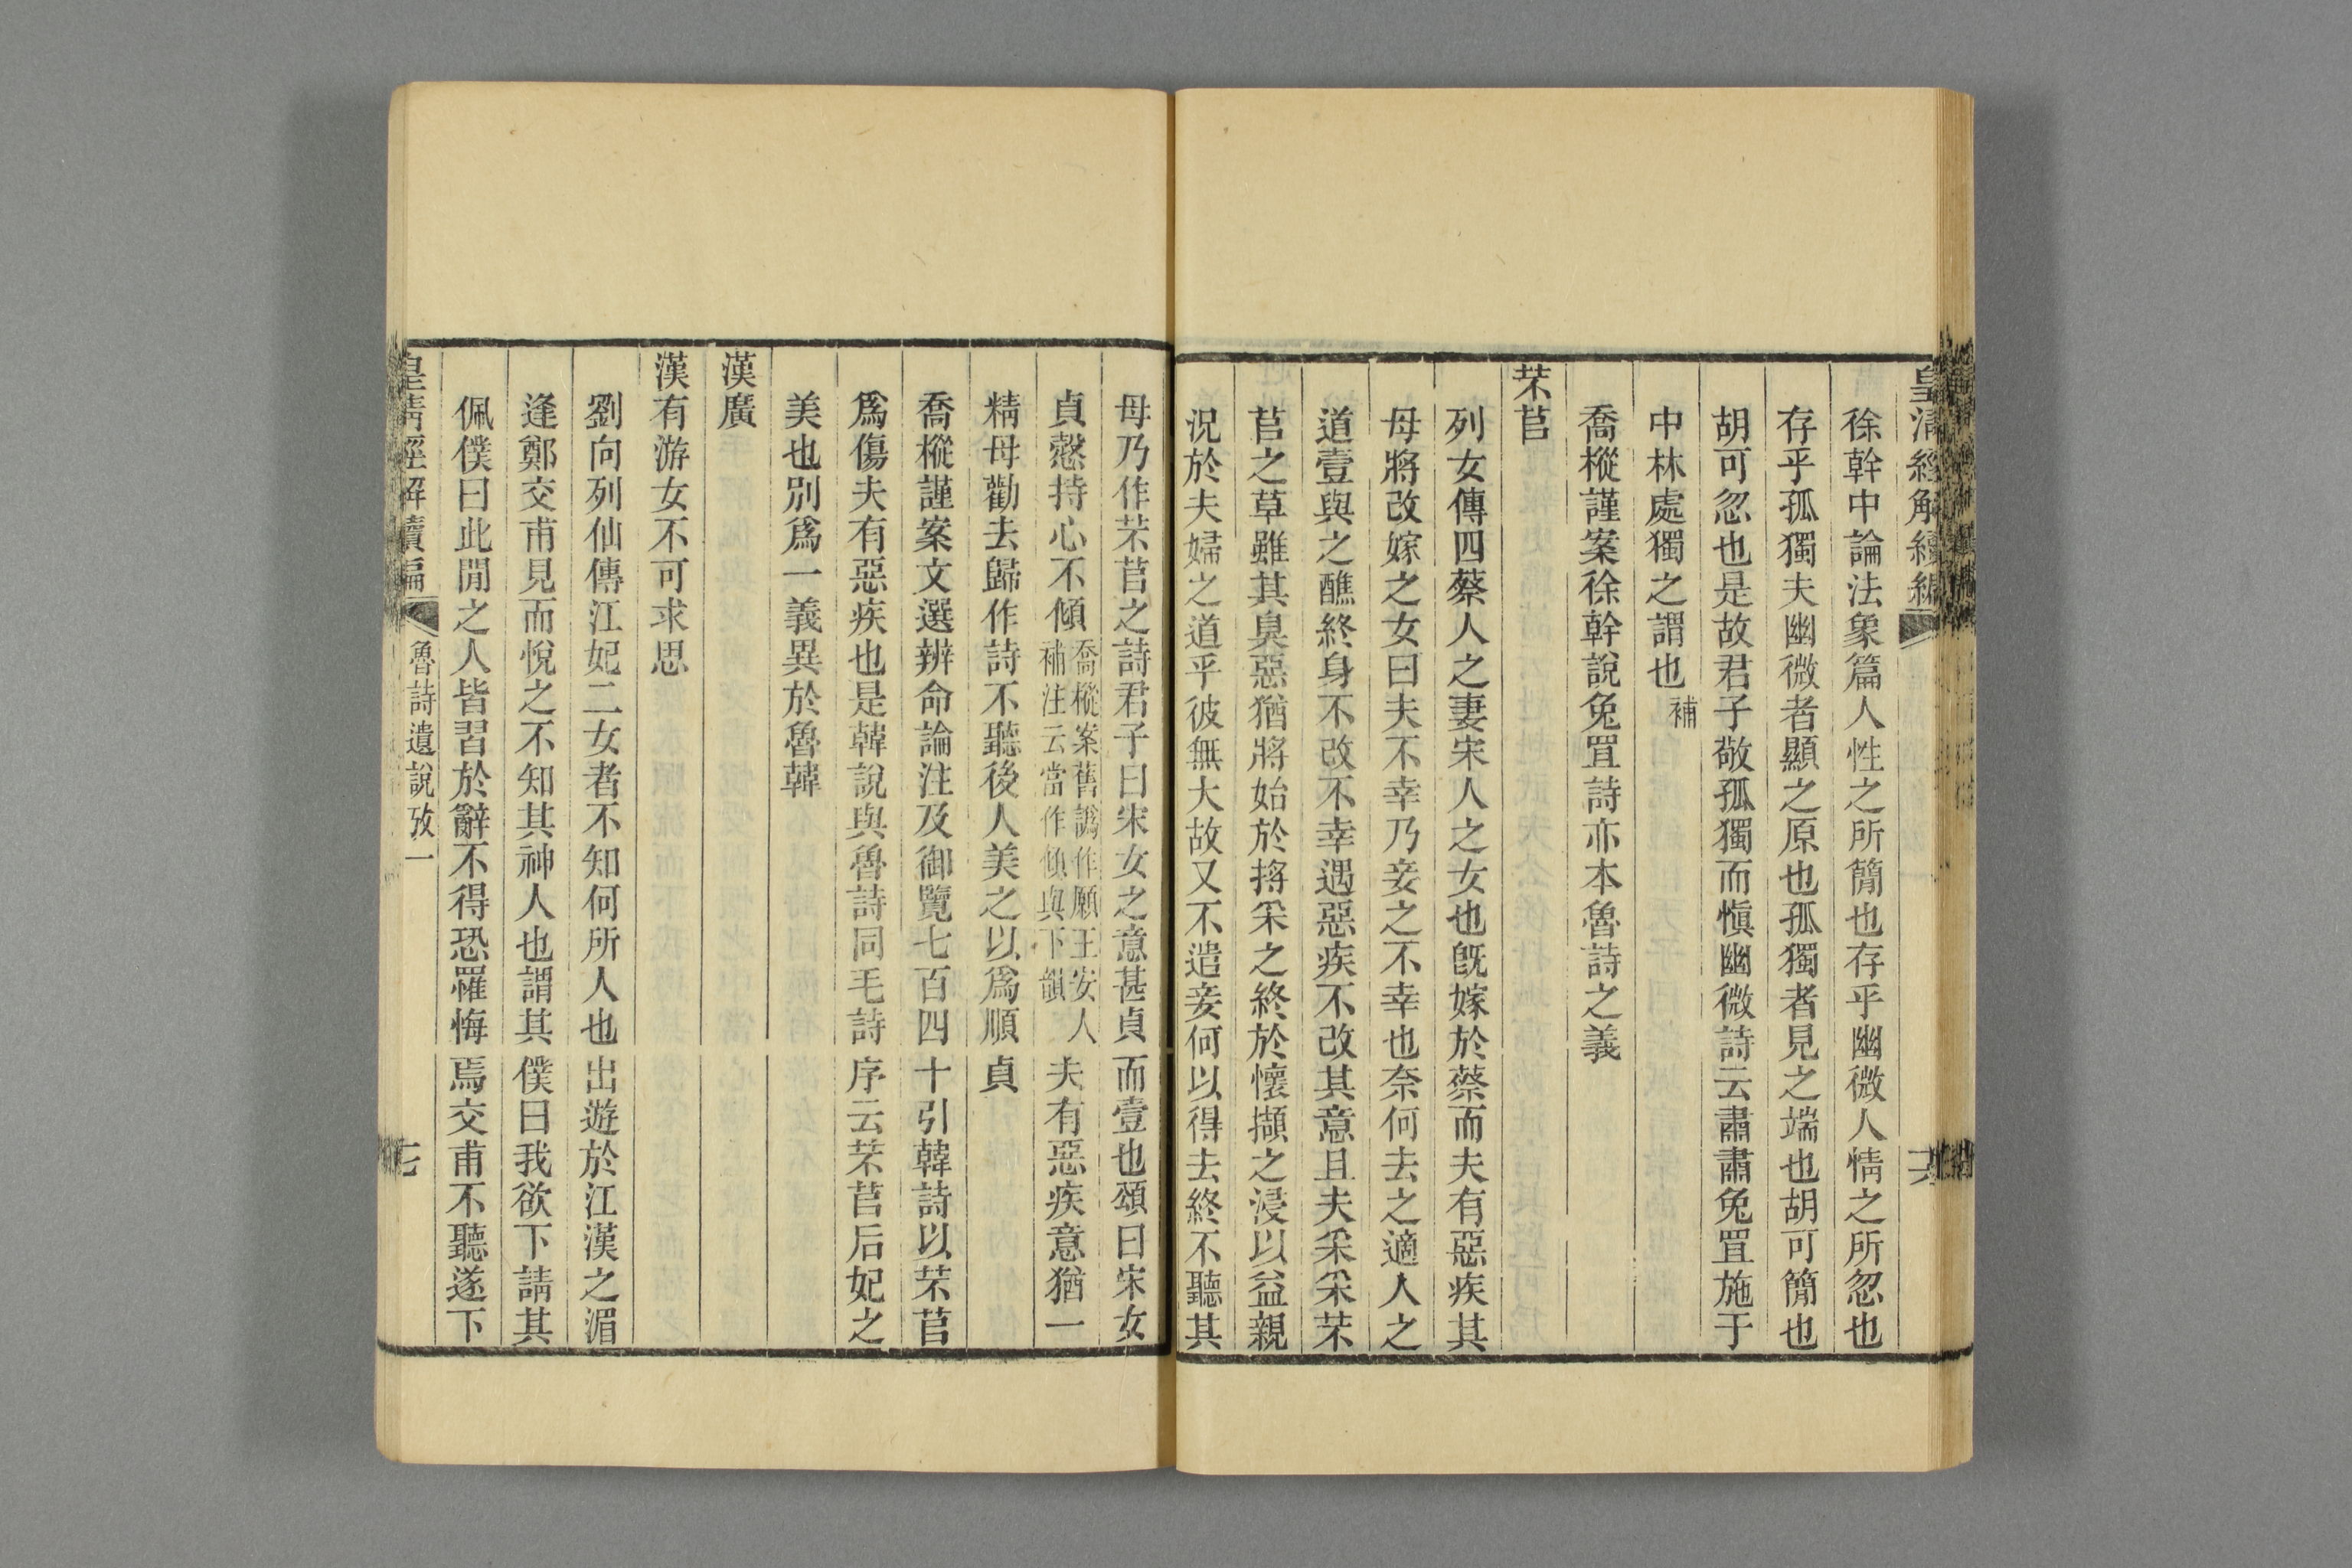 皇清經解續編
六
徐幹中論法象篇人性之所簡也存乎幽微人情之所忽也
存乎孤獨夫幽微者顯之原也孤獨者見之端也胡可簡也
胡可忽也是故君子敬孤獨而愼幽微詩云肅肅兔罝施于
中林處獨之謂也補
喬樅謹案徐幹說兔罝詩亦本魯詩之義
芣苢
列女傳四蔡人之妻宋人之女也旣嫁於蔡而夫有惡疾其
母將改嫁之女曰夫不幸乃妾之不幸也奈何去之適人之
道壹與之醮終身不改不幸遇惡疾不改其意且夫采采芣
苢之草雖其臭惡猶將始於捋采之終於懷擷之浸以益親
況於夫婦之道乎彼無大故又不遣妾何以得去終不聽其
母乃作芣苢之詩君子曰宋女之意甚貞而壹也頌曰宋女
貞慤持心不傾喬樅案舊譌作願王安人
補注云當作傾與下韻夫有惡疾意猶一
精母勸去歸作詩不聽後人美之以爲順貞
喬樅謹案文選辨命論注及御覽七百四十引韓詩以芣苢
爲傷夫有惡疾也是韓說與魯詩同毛詩序云芣苢后妃之
美也別爲一義異於魯韓
漢廣
漢有游女不可求思
劉向列仙傳江妃二女者不知何所人也出遊於江漢之湄
逢鄭交甫見而悅之不知其神人也謂其僕曰我欲下請其
佩僕曰此閒之人皆習於辭不得恐罹悔焉交甫不聽遂下
皇清經解續編
魯詩遺說攷一
七